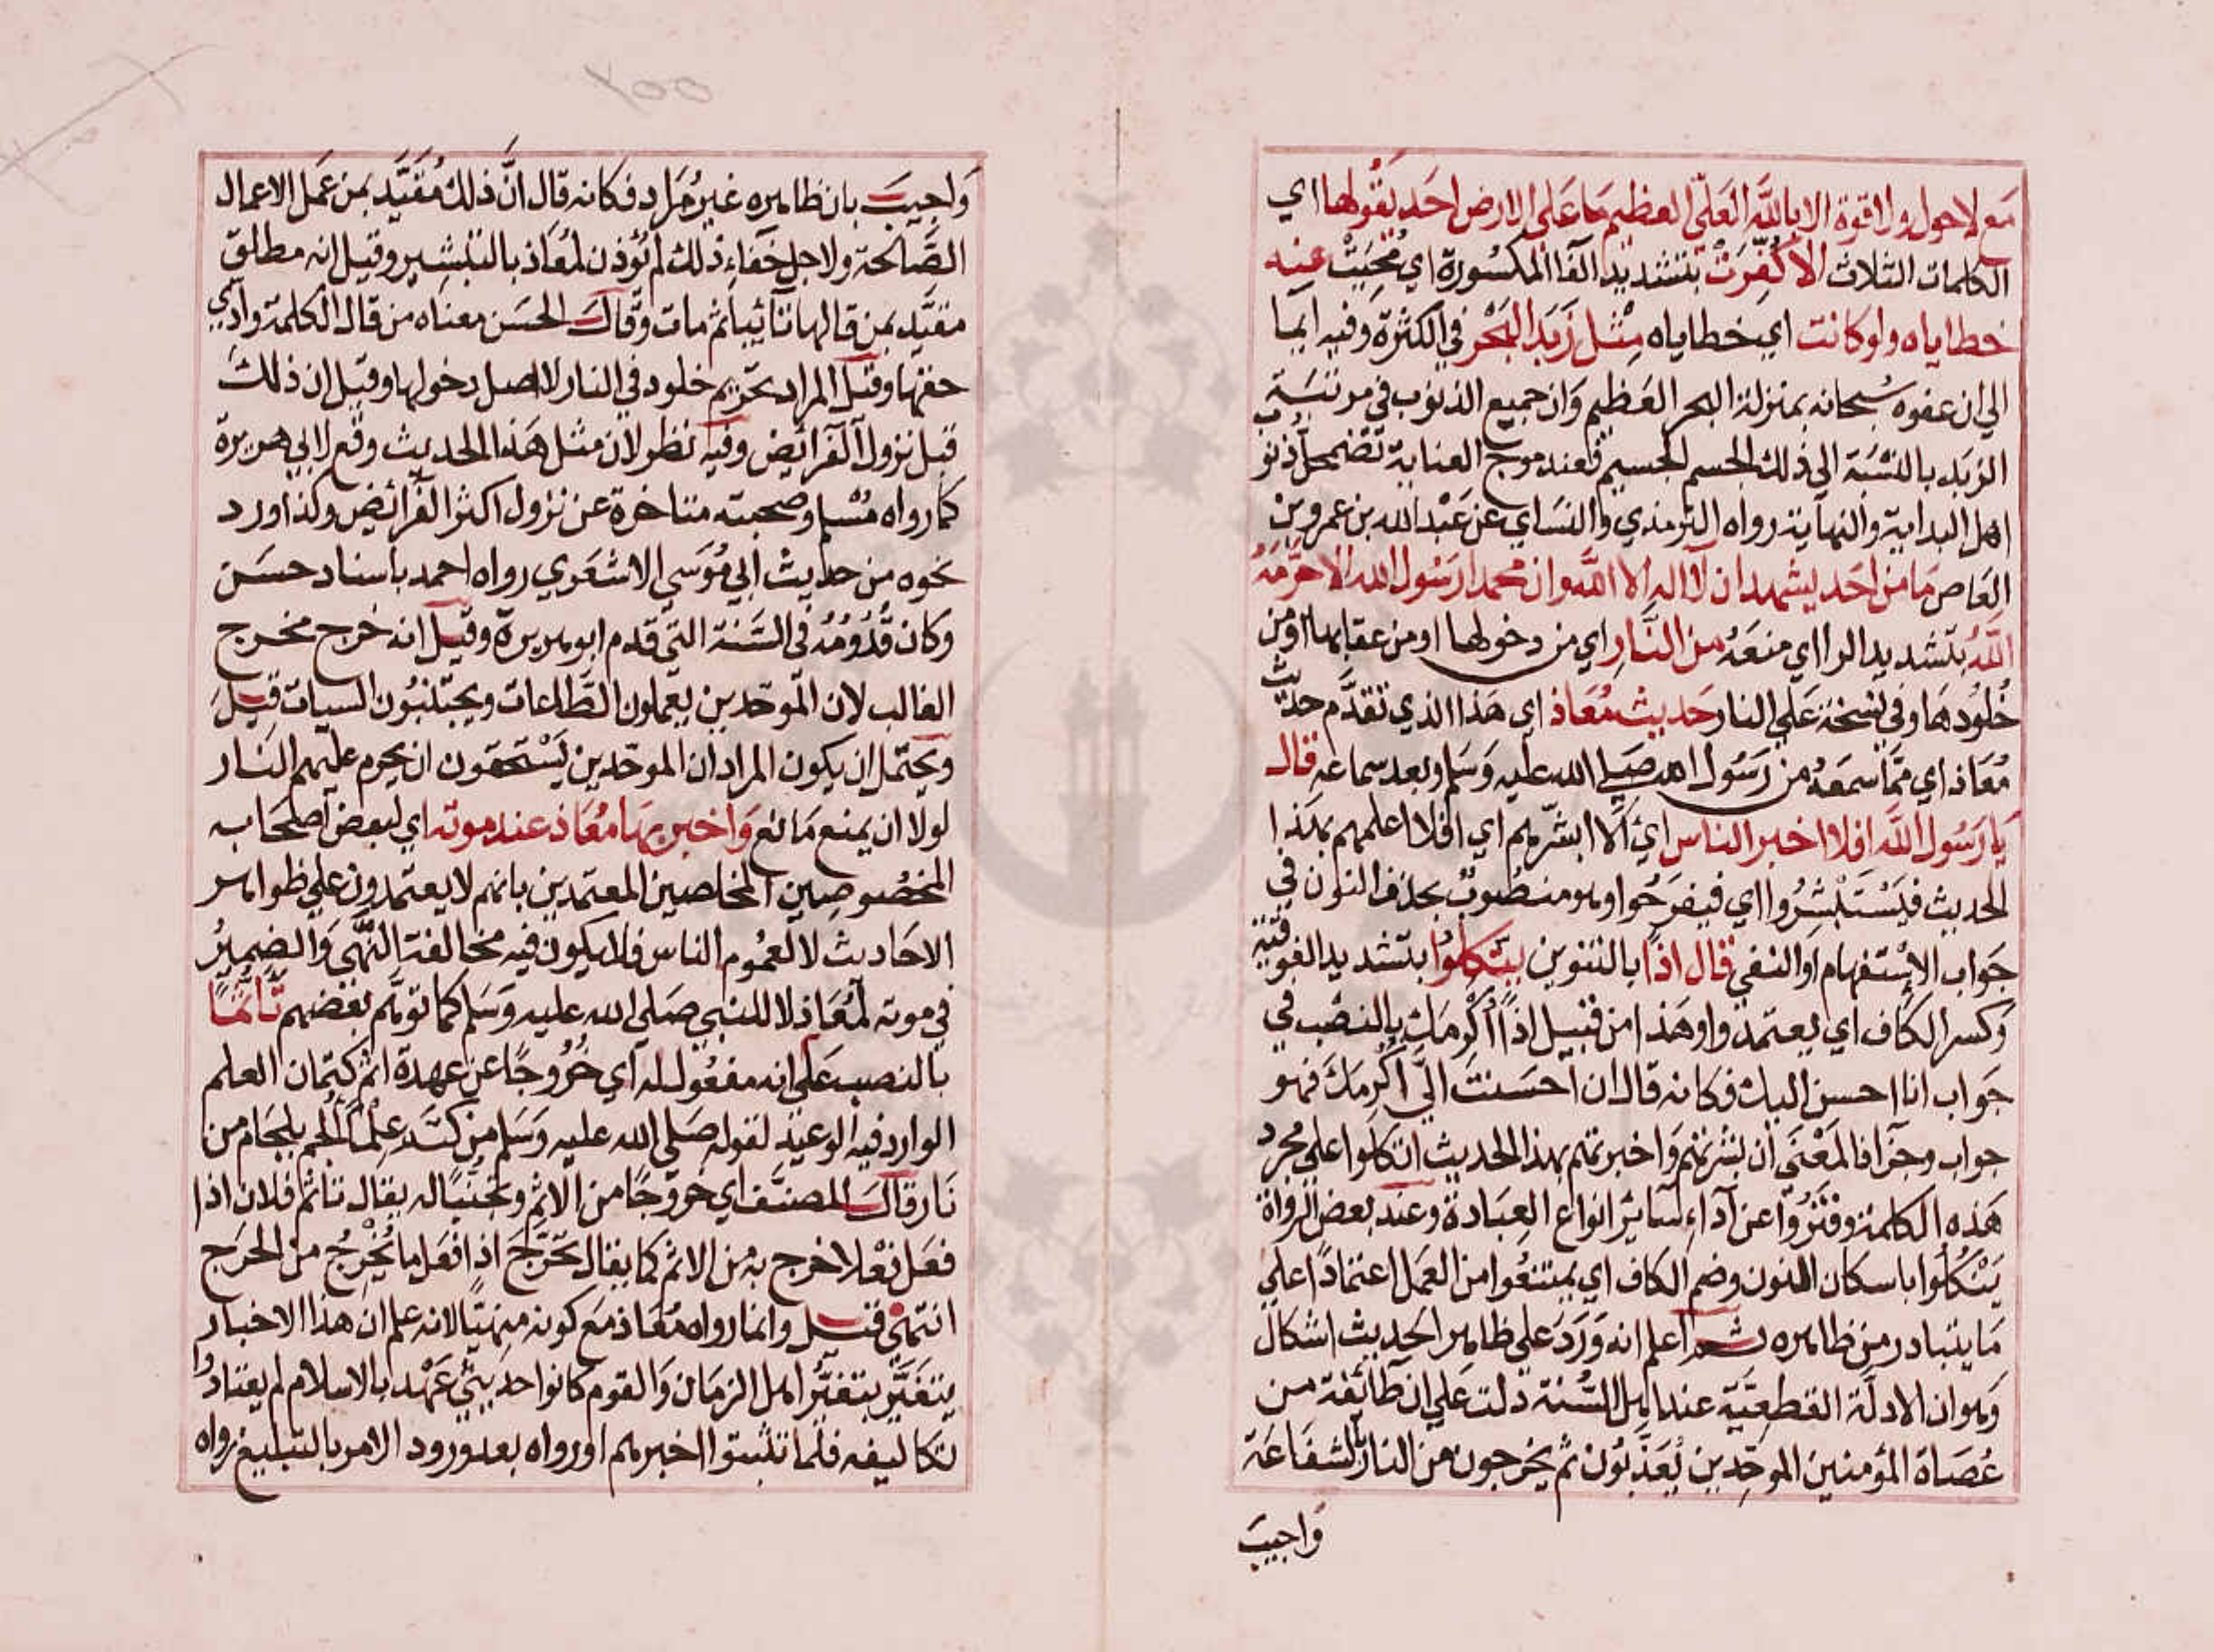 مع لا حول ولا قوة الا بالله العلي العظيم ما على الارض احد يقولها اي
الكلمات الثلاث الا كُفِّرَتْ بتشديد الفا المكسورة اي مُحِيَتْ عنه
خطاياه ولو كانت اي خطاياه مِثْل زَبَد البَحْر في الكثرة وفيه ايما
الي ان عفوه سُبحانه بمنزلة البحر العظيم وان جميع الذنوب في مرتبة
الزبد بالنسبة الي ذلك الجسم الجسيم فعند موج العناية تضمحل ذنوب
اهل البداية والنهاية رواه الترمذي والنساي عن عَبْد الله بن عمرو بن
العاص مَا من احَد يشهد ان لا اله الا الله وان محمدا رسُول الله الا حرّمَهُ
اللّهُ بتشديد الرا اي منعَهُ من النَّارِ اي من دخولها او من عقابها او من
خُلُودهَا وفي نسخة عَلَي النار حَديث مُعَاذ اي هَذا الذي تقدَّم حديث
مُعَاذ اي ممّا سمعَهُ من رَسُول الله صلي الله عليه وَسَلم وبعد سماعه قال
يا رَسُول اللّه افلا اخبر الناس اي الا ابشّرهم اي افلا اعلمهم بهَذا
الحديث فيَسْتَبْشِرُوا اي فيفرَحُوا وهو منصُوبٌ بحذف النون في
جَواب الاسْتفهام او النفي قال اذًا بالتنوين يتّكلُوا بتشديد الفوقية
وَكسر الكاف اي يعتمدوا وهَذا من قبيل اذًا اُكْرِمَك بالنصب في
جَواب انا احسن اليك فكانه قال ان احسَنتَ اليّ اُكرِمَكَ فهو
جواب وجزا فالمَعْنَي ان بشرتهم وَاخبرتهم بهذا الحديث اتكلوا علي مجرد
هَذه الكلمة وفَتَرُوا عن آداءِ سَائِر انواع العِبَادة وعند بعض الرواة
يَنْكُلُوا باسكان النون وضم الكاف اي يمتنعُوا من العَمَل اعتمادًا علي
مَا يتبادر من ظاهره ثم اعلم انه وَرَدَ علي ظاهر الحديث اشكال
وَهو ان الادلّة القطعيّة عند اهل السُّنة دلت عَلي ان طائفة من
عُصَاة المؤمنين الموحِّدين يُعَذَّبُون ثم يخرجون من النار بالشفَاعَة
وَاجيبَ
وَاجيبَ بان ظاهره غيرُ مُرَاد فكانه قال انَّ ذلك مُقَيَّد بمن عَمل الاعمال
الصَّالحة ولاجل خفَاءِ ذلك لم يُؤذن لمُعَاذ بالتبشير وقيل انه مطلق
مقيَّد بمن قالها تائبا ثم مات وَقَال الحسَن معناه من قال الكلمة وادّي
حقها وقيل المراد تحريم خلود في النار لا اصل دخولها وقيل ان ذلك
قبل نزول الفرائض وفيه نظر لان مثل هَذا الحديث وقع لابي هريرة
كما رواه مُسْلم وصحبته متاخرة عن نزول اكثر الفرائض وكذا ورد
نحوه من حديث ابي مُوسَي الاشعَري رواه احمد باسناد حسَن
وكان قُدُومُهُ في السَّنة التي قدم ابو هريرة وقيل انه خرج مخرج
الغالب لان الموَحّدين يعملون الطَّاعات ويجتنبُون السيات قيلَ
ويحتمل ان يكون المراد ان الموحّدين يَسْتَحقون ان يحرم عليهم النَار
لولا ان يمنع مَانع وَاخبر بهَا مُعَاذ عند موته اي لبعض اصحَابه
المخصُوصِين المخلصين المعتمدين بانهم لا يعتمدون علي ظواهر
الاحَاديث لا لعمُوم الناس فلا يكون فيه مخالفة النَّهي وَالضميرُ
في موته لمُعَاذ لا للنبي صَلي الله عليه وَسَلم كما توهَّم بعضهم تَأثُّمًا
بالنصب عَلي انه مفعُول له اي خُرُوجًا عن عهدة اثم كتمان العلم
الوارد فيه الوعيد لقوله صَلي الله عليه وَسَلم من كتَم عِلْمًا اُلجم بلجَام من
نَار قال المصنّف اي خروجًا من الاثمِ وتجنّبًا له يقال تاثم فلان اذا
فعَل فعْلا خرج به من الاثم كما يقال تحَرَّجَ اذا فعَل ما يُخْرِجُ من الحَرَج
انتهي فقيل وانما رواه مُعَاذ مَع كونه منهيًا لانه علم ان هذا الاخبار
يتغَيَّر بتغيُّر اهل الزمَان وَالقوم كانوا حديثي عَهْد بالاسلام لم يعتادوا
لتكاليفه فلما تثبتوا اخبرهم او رواه بعد ورود الامر بالتبليغ رواه